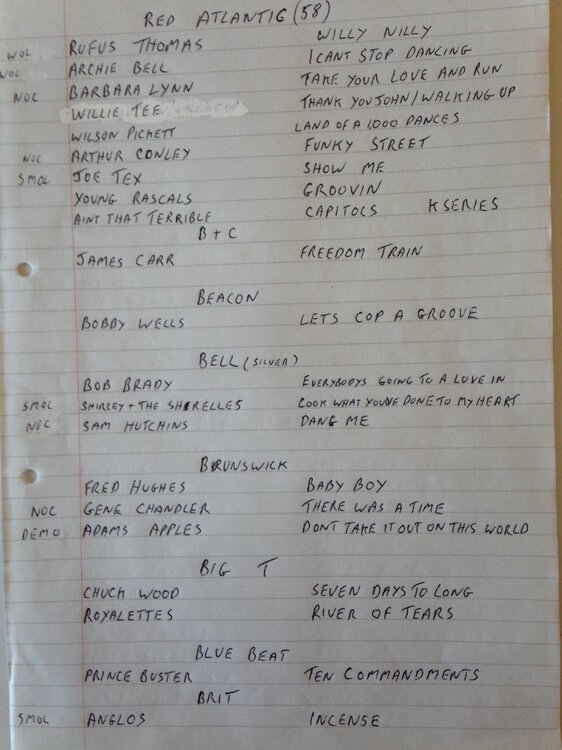 RED ATLANTIC (58)
WOL RUFUS THOMAS WILLY NILLY
WOL ARCHIE BELL I CANT STOP DANCING
NOC BARBARA LYNN TAKE YOUR LOVE AND RUN
WILLIE TEE THANK YOU JOHN/WALKING UP
WILSON PICKETT LAND OF A 1000 DANCES
NOC ARTHUR CONLEY FUNKY STREET
SMOL JOE TEX SHOW ME
YOUNG RASCALS GROOVIN
AINT THAT TERRIBLE CAPITOLS K SERIES
B + C
JAMES CARR FREEDOM TRAIN
BEACON
BOBBY WELLS LETS COP A GROOVE
BELL (SILVER)
BOB BRADY EVERYBODYS GOING TO A LOVE IN
SMOL SHIRLEY + THE SHIRELLES LOOK WHAT YOUVE DONE TO MY HEART
NOC SAM HUTCHINS DANG ME
BRUNSWICK
FRED HUGHES BABY BOY
NOC GENE CHANDLER THERE WAS A TIME
DEMO ADAMS APPLES DONT TAKE IT OUT ON THIS WORLD
BIG T
CHUCK WOOD SEVEN DAYS TO LONG
ROYALETTES RIVER OF TEARS
BLUE BEAT
PRINCE BUSTER TEN COMMANDMENTS
BRIT
SMOL ANGLOS INCENSE